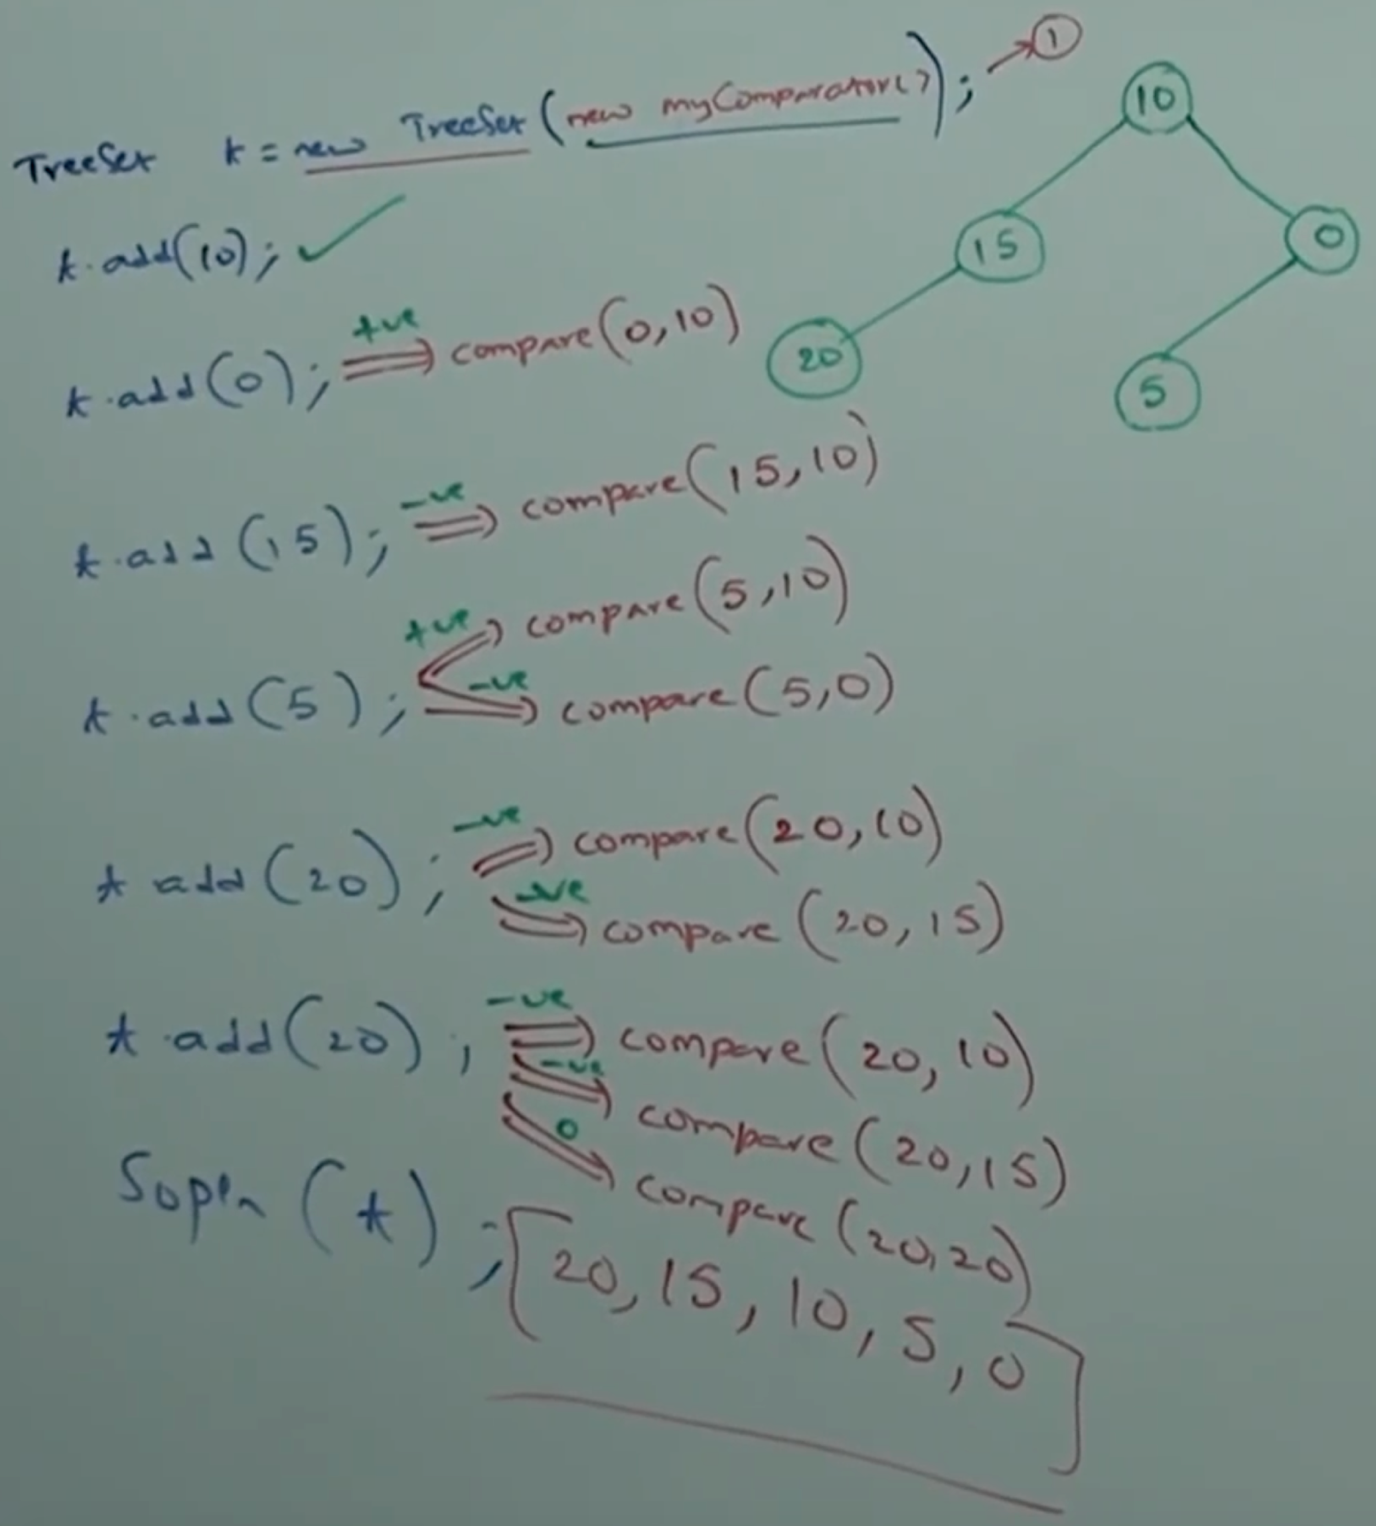 TreeSet t = new TreeSet (new myComparator()); → 1
t.add(10); ✓
t.add(0); +ve ⇒ compare(0,10)
t.add(15); -ve ⇒ compare(15,10)
t.add(5); +ve ⇒ compare(5,10)
-ve ⇒ compare(5,0)
t add(20); -ve ⇒ compare(20,10)
-ve ⇒ compare(20,15)
t.add(20); -ve ⇒ compare(20,10)
-ve ⇒ compare(20,15)
0 ⇒ compare(20,20)
Sopln(t); [20, 15, 10, 5, 0]
10
15
0
20
5